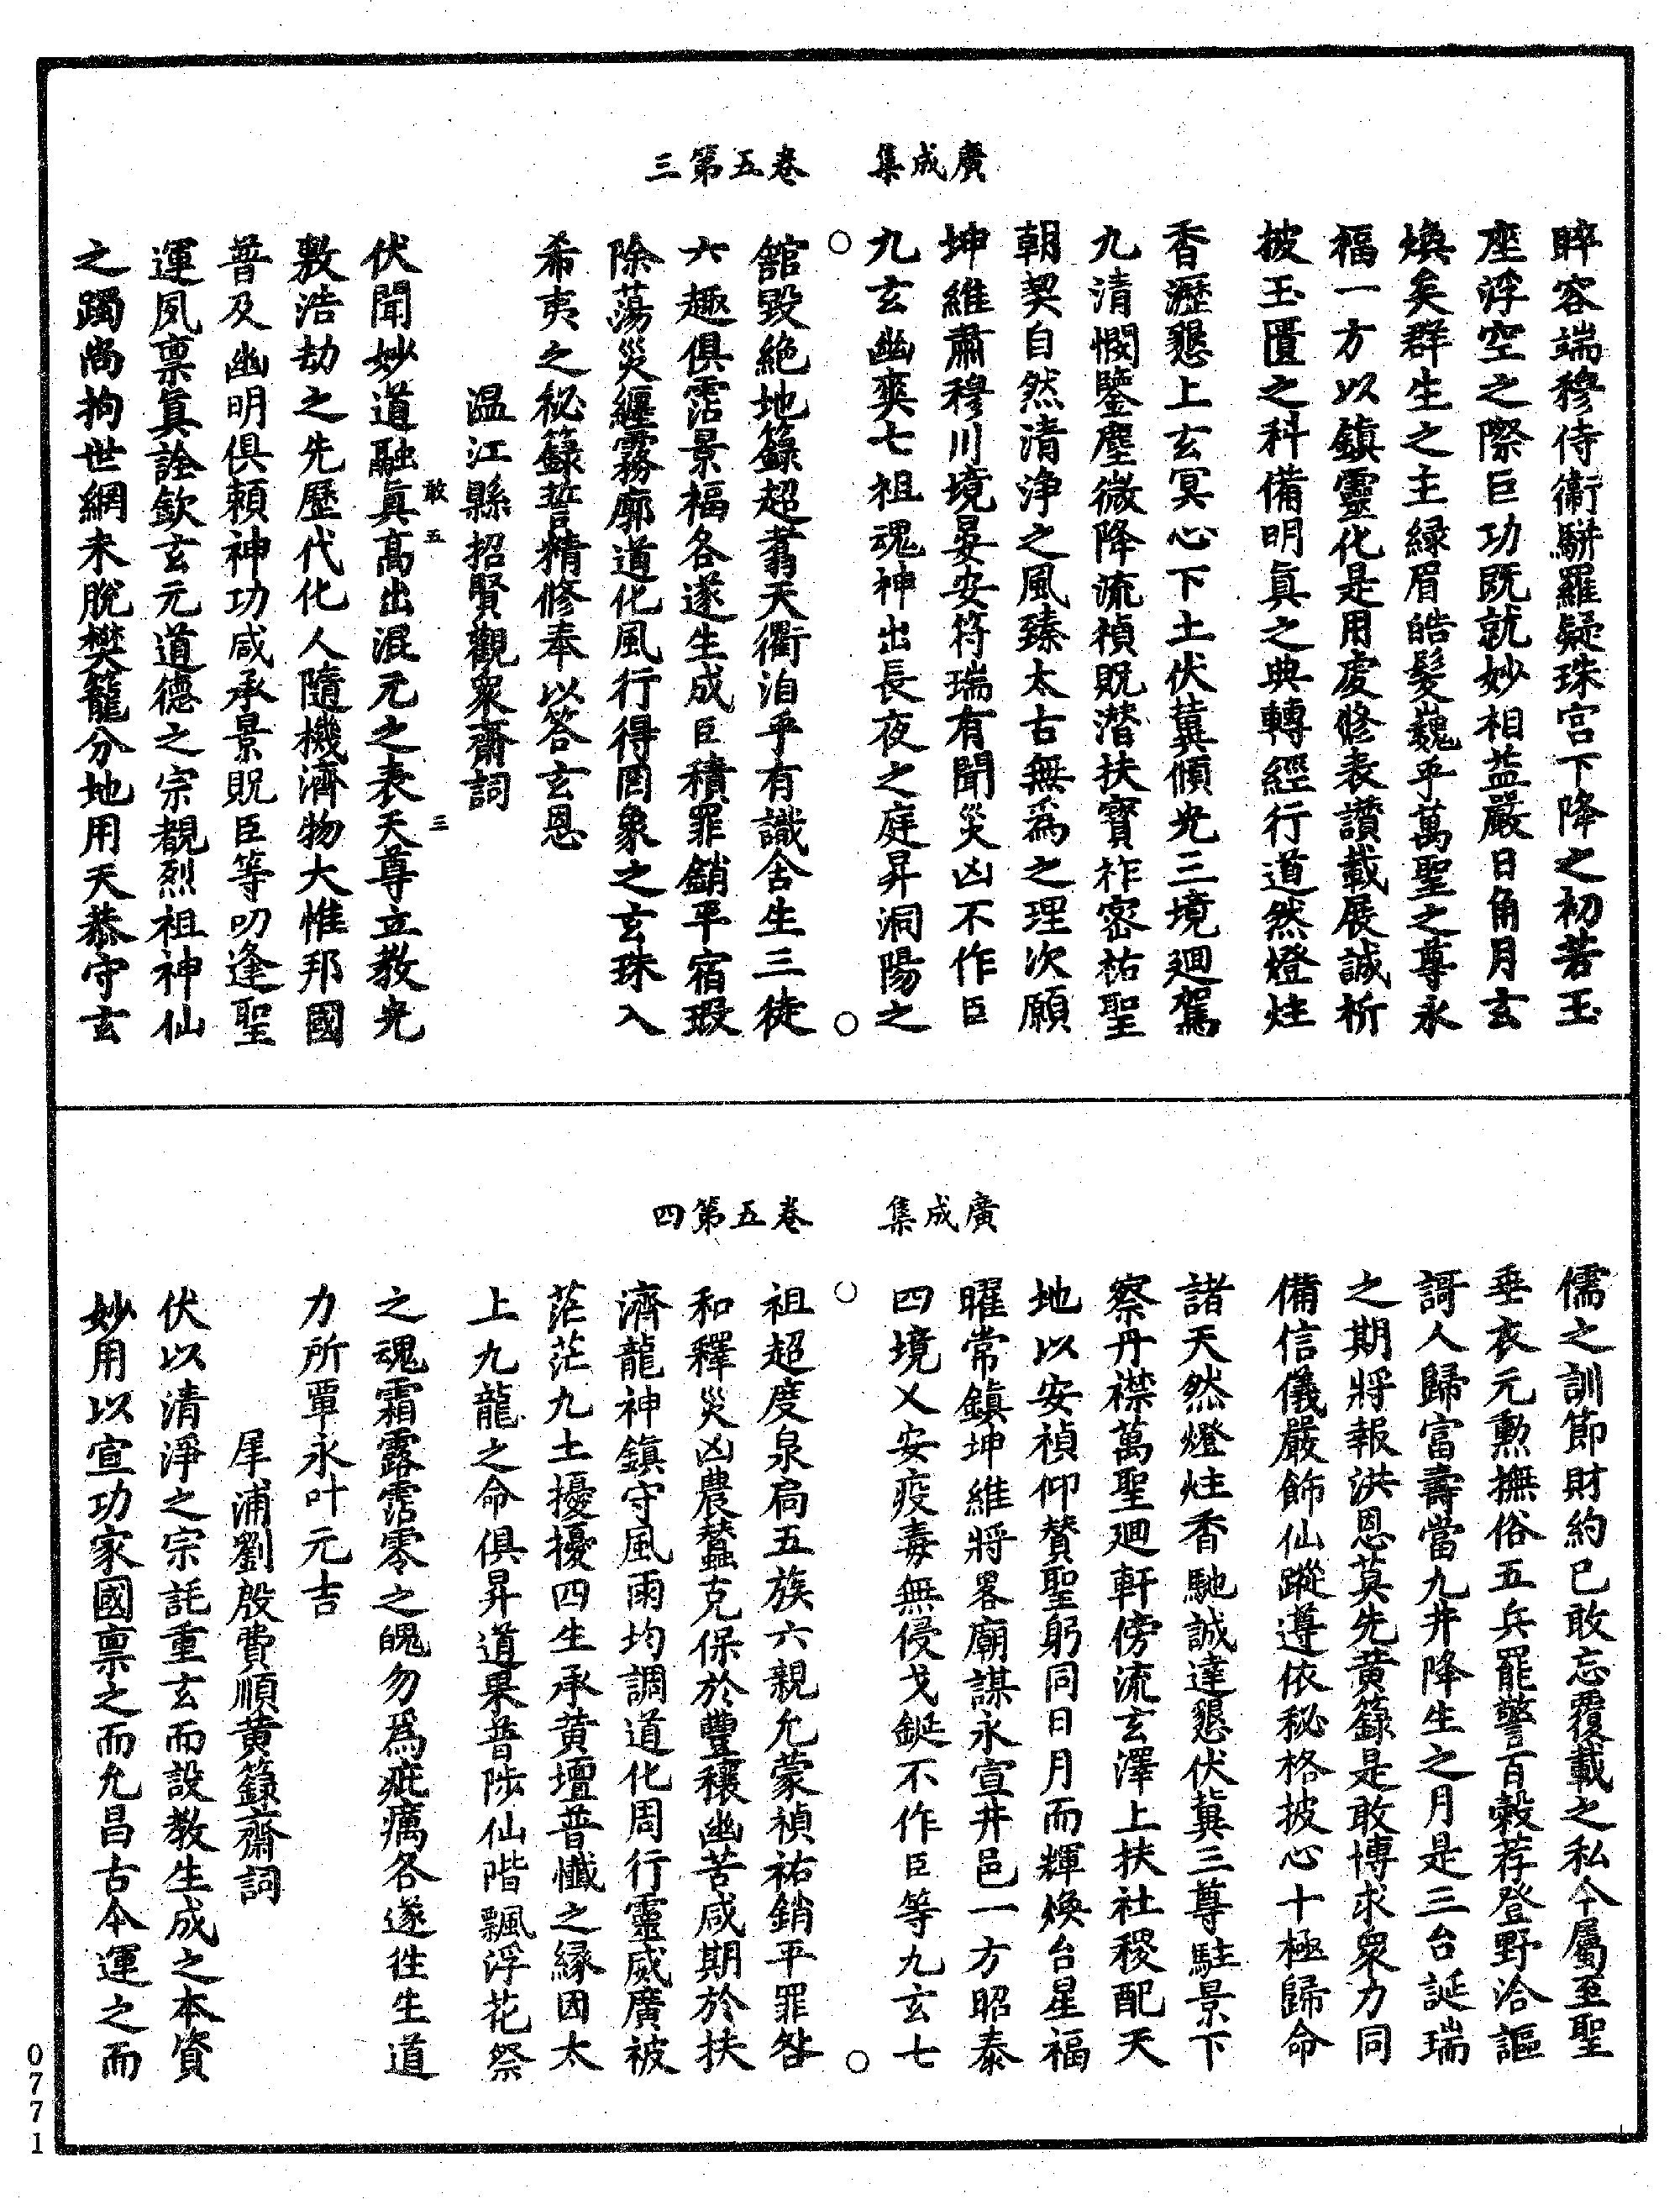 廣成集　卷五第三
睟容端穆侍衛駢羅疑珠宫下降之初若玉
座浮空之際巨功既就妙相益嚴日角月玄
煥矣群生之主緑眉皓髮巍乎萬聖之尊永
福一方以鎮靈化是用虔修表讚載展誠祈
披玉匱之科備明眞之典轉經行道然燈炷
香瀝懇上玄冥心下土伏冀傾光三境廻駕
九清憫鑒塵微降流禎貺潜扶寳祚密祐聖
朝契自然清净之風臻太古無爲之理次願
坤維肅穆川境晏安符瑞有聞災凶不作臣
九玄幽爽七祖魂神出長夜之庭昇洞陽之
舘毀絶地籙超翥天衢洎乎有識含生三徒
六趣俱霑景福各遂生成臣積罪銷平宿瑕
除蕩災纏霧廓道化風行得罔象之玄珠入
希夷之秘籙誓精修奉以答玄恩
温江縣招賢觀衆齋詞
伏聞妙道融眞高出混元之表天尊立教光
敢五　三
敷浩劫之先歷代化人隨機濟物大惟邦國
普及幽明俱頼神功咸承景貺臣等叨逢聖
運夙禀眞詮欽玄元道德之宗覩烈祖神仙
之躅尚拘世網未脫樊籠分地用天恭守玄
廣成集　卷五第四
儒之訓節財約已敢忘覆載之私今屬至聖
垂衣元勳撫俗五兵罷警百榖荐登野洽謳
謌人歸富壽當九井降生之月是三台誕瑞
之期將報洪恩莫先黄籙是敢博求衆力同
備信儀嚴飾仙蹤遵依秘格披心十極歸命
諸天然燈炷香馳誠達懇伏冀三尊駐景下
察丹襟萬聖廻軒傍流玄澤上扶社稷配天
地以安禎仰賛聖躬同日月而輝煥台星福
曜常鎮坤維將畧廟謀永宣井邑一方昭泰
四境乂安疫毒無侵戈鋋不作臣等九玄七
祖超度泉扃五族六親允蒙禎祐銷平罪咎
和釋災凶農蠶克保於豐穰幽苦咸期於扶
濟龍神鎮守風雨均調道化周行靈威廣被
茫茫九土擾擾四生承黄壇普懺之縁因太
上九龍之命俱昇道果普陟仙階飄浮花祭
之魂霜露霑零之魄勿爲疵癘各遂徃生道
力所覃永叶元吉
犀浦劉殷費順黄籙齋詞
伏以清淨之宗託重玄而設教生成之本資
妙用以宣功家國禀之而允昌古今運之而
0771